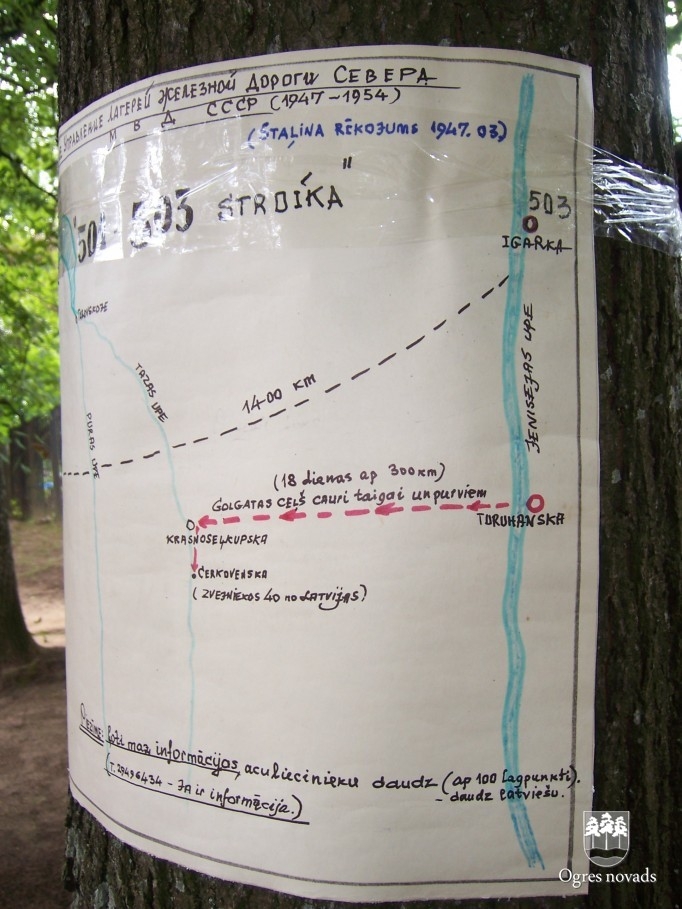 Управление лагерей железной дороги Севера
М В Д СССР (1947-1954)
(STAĻINA RĒĶOJUMS 1947.03)
"501-503 STROIKA"
503
IGARKA
TAZAS UPE
PURAS UPE
1400 KM
JENISEJAS UPE
(18 dienas ap 300km)
GOLGATAS CEĻŠ cauri taigai un purviem
TURUHANSKA
KRASNOSEĻKUPSKA
ČERKOVENSKA
(ZVEJNIEKOS 40 no LATVIJAS)
Piezīme: Ļoti maz informācijos, aculiecinieku daudz (ap 100 lagpunkti).
(T. 29496434 - JA ir informācija.)
- daudz latviešu.
Ogres novads